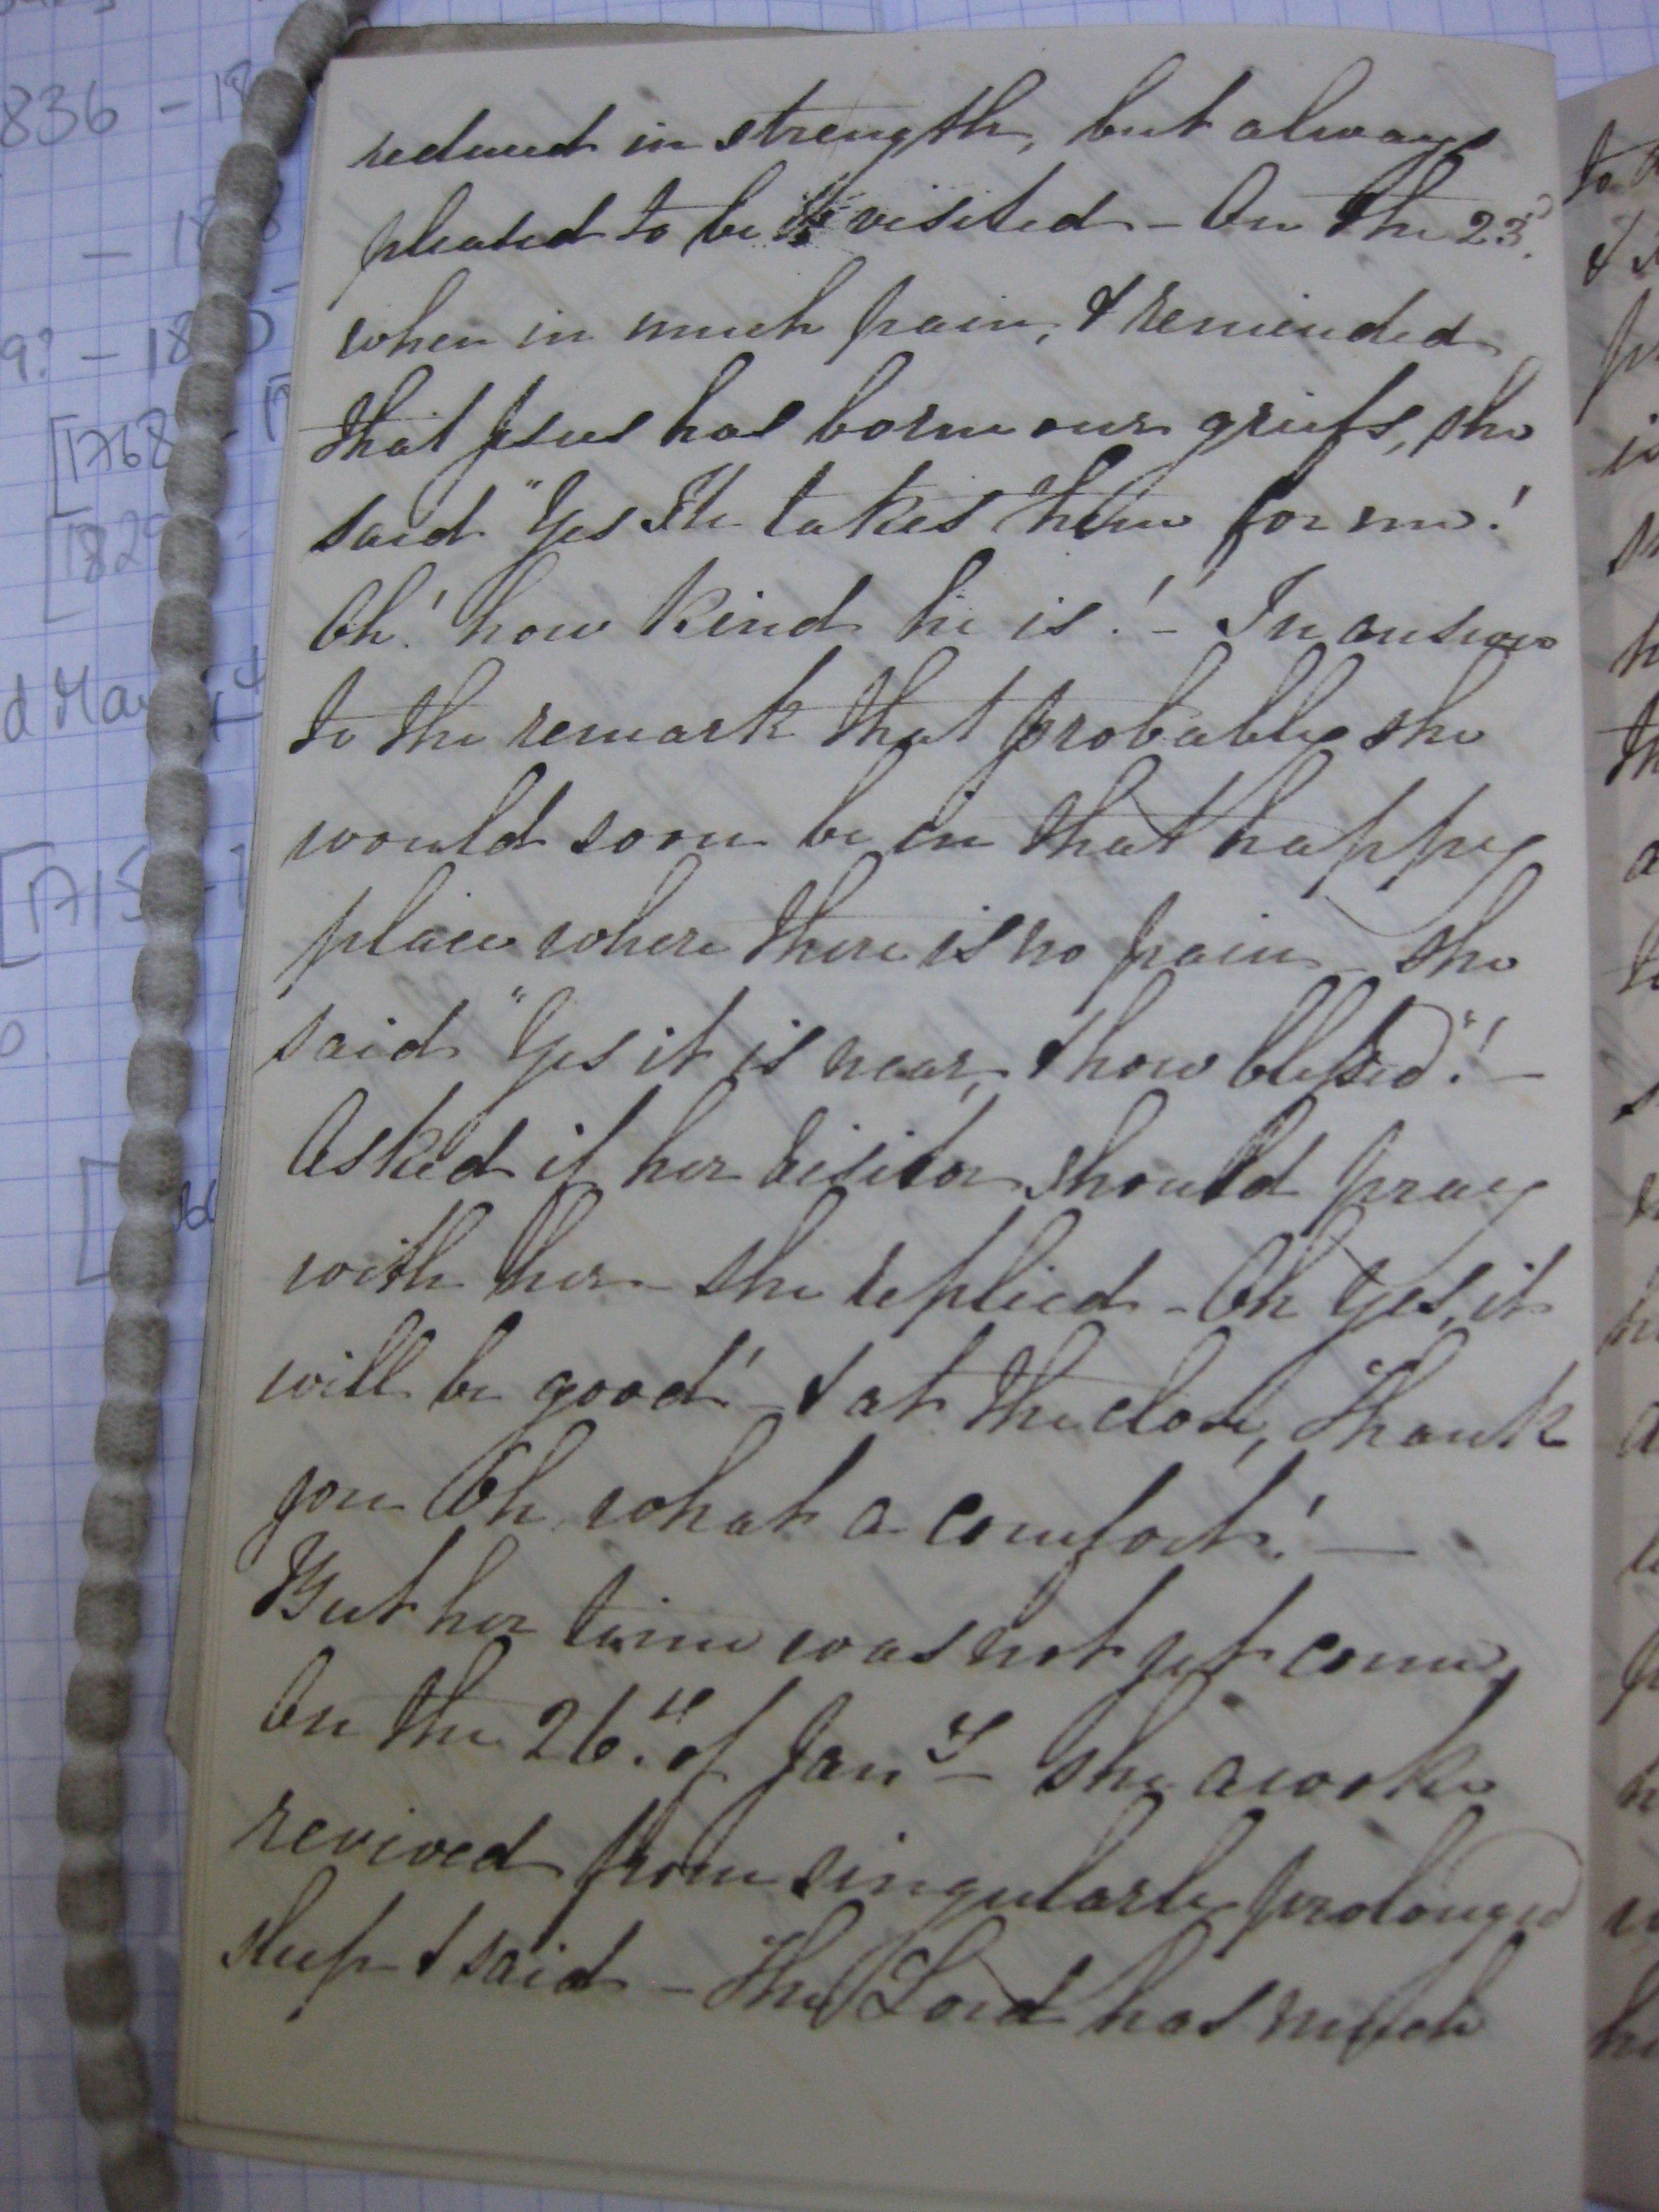 reduced in strength, but always
pleased to be visited - On the 23.d
when in much pain, & reminded
that Jesus has borne our griefs, she
said "Yes He takes them for me!
Oh! how kind he is! - In answer
to the remark that probably she
would soon be in that happy
place where there is no pain - she
said "Yes it is near, & how blessed"! -
Asked if her visitor should pray
with her - she replied - Oh Yes, it
will be good! - & at the close, Thank
you Oh, what a comfort! -
But her time was not yet come,
On the 26.th of Jany - she awoke
revived from singularly prolonged
sleep & said - The Lord has much
836 - 18
- 18 8
9? - 18
[1768 -
[182
d Mar
[1715 -